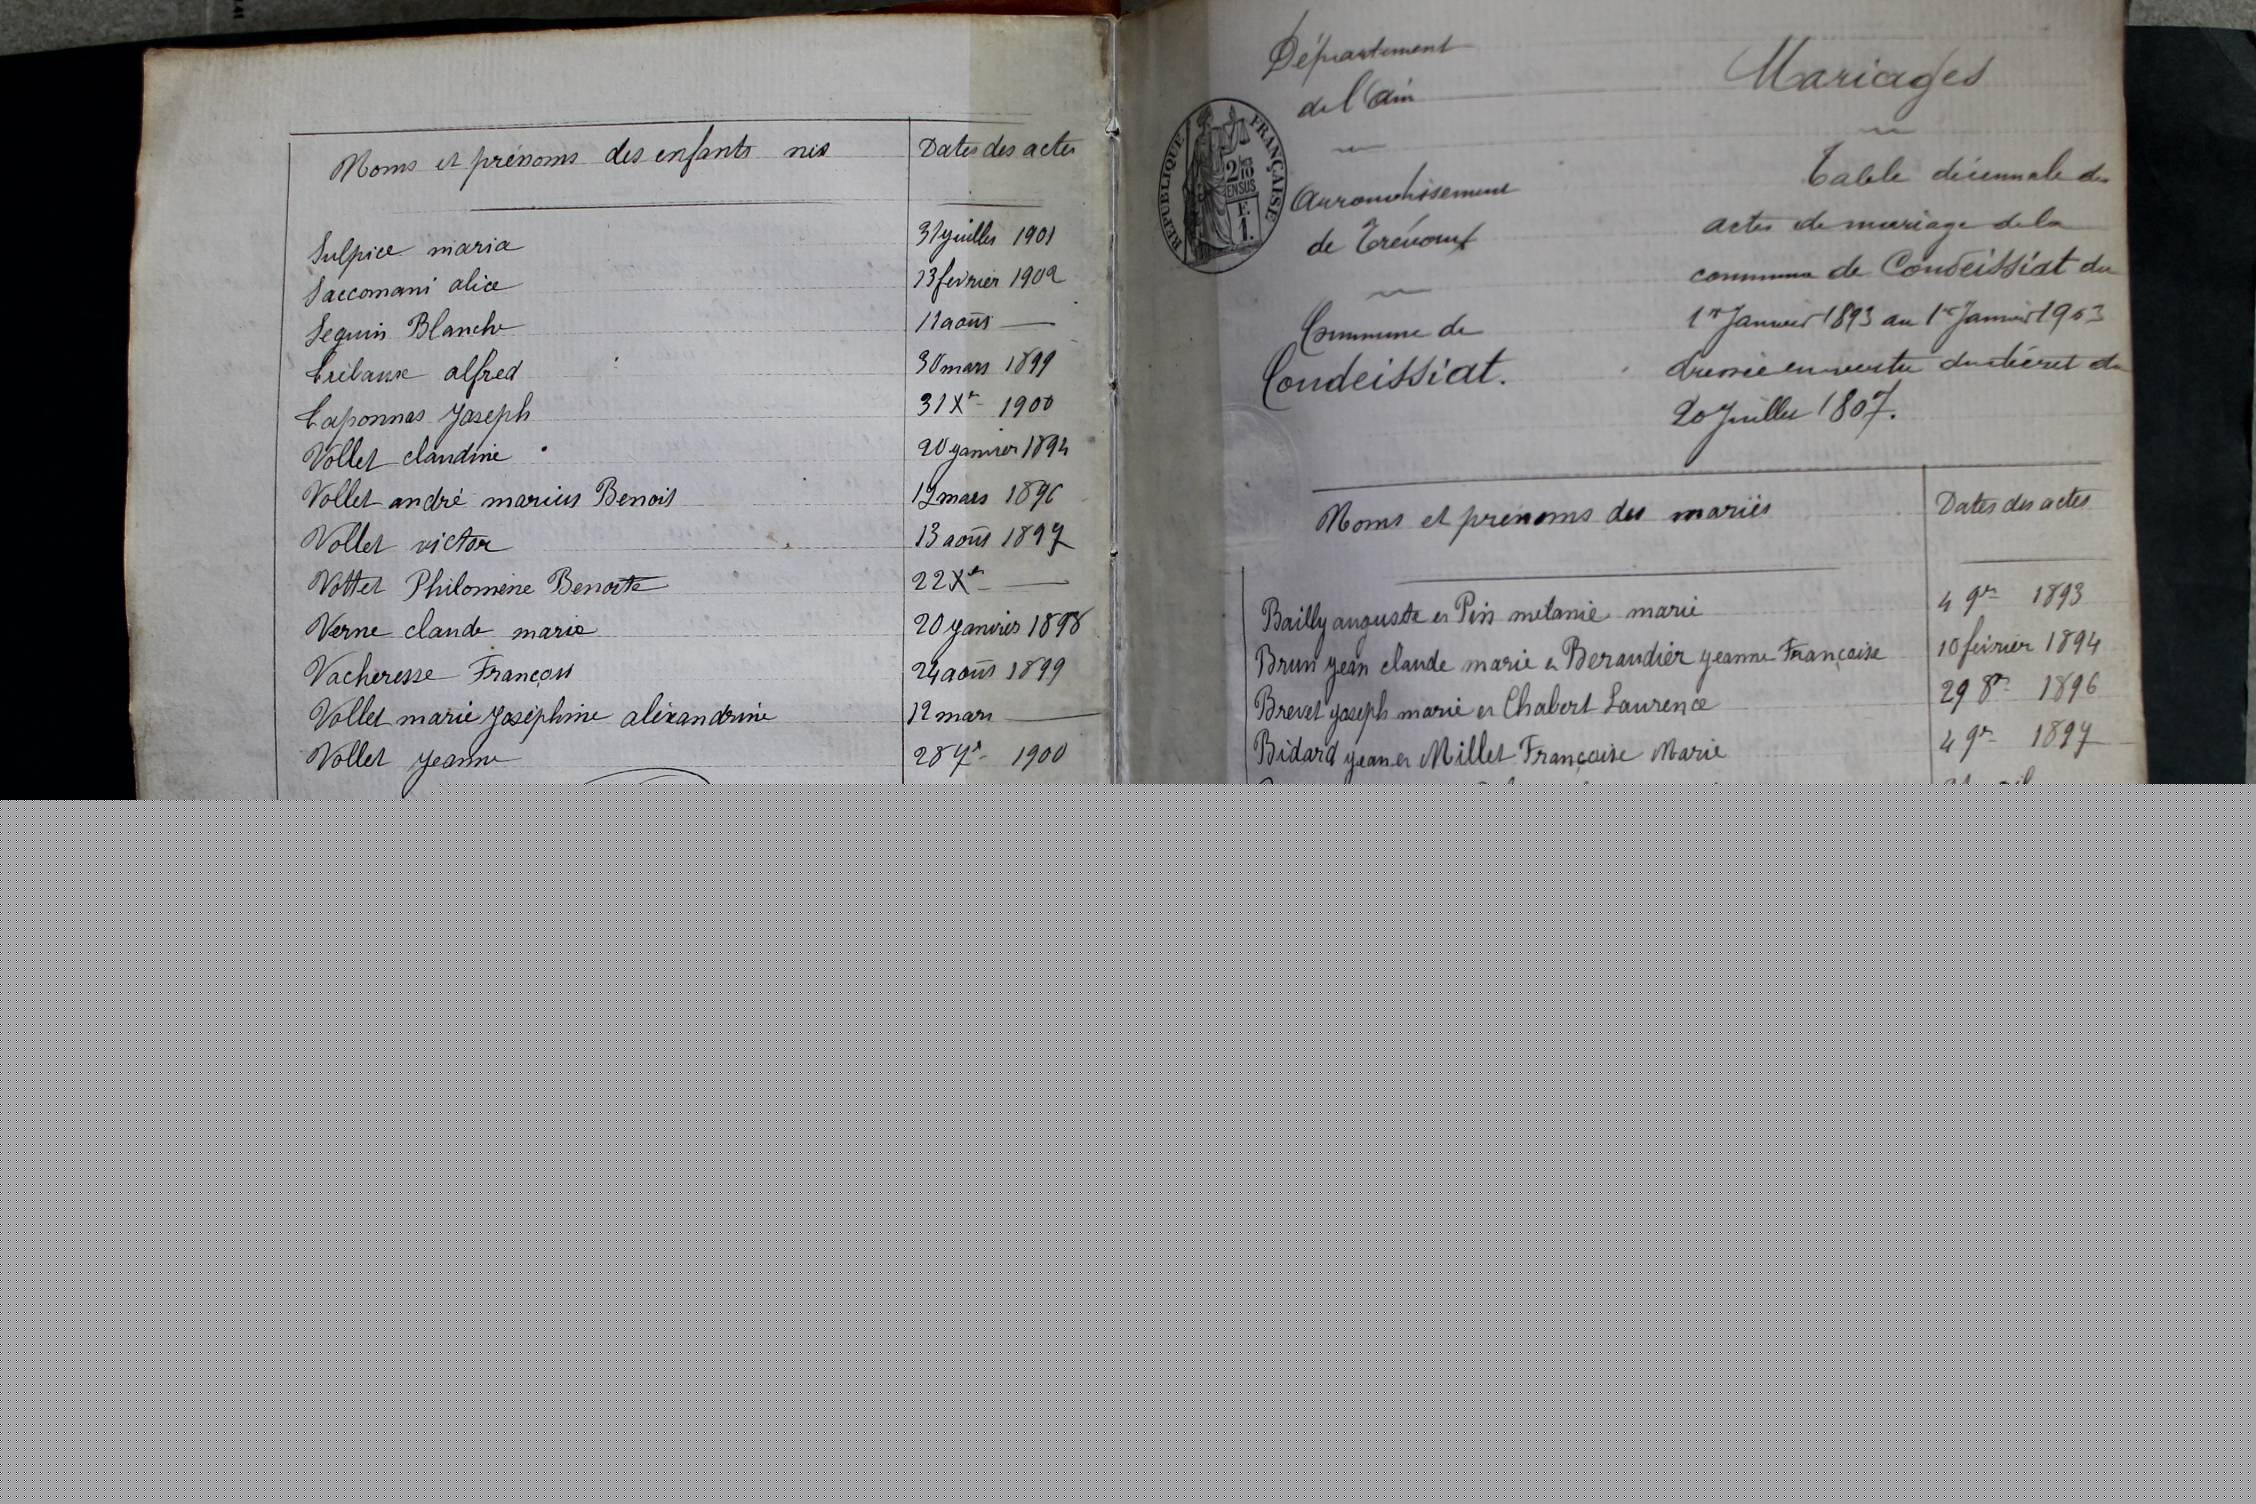 Noms et prénoms des enfants nés
Dates des actes
Sulpice maria 31 juillet 1901
Saccomani alice 13 fevrier 1902
Seguin Blanche 11 août —
alfred 30 mars 1899
Taponnas Joseph 31 Xre 1900
Vollet claudine 20 janvier 1894
Vollet andré marius Benoit 12 mars 1896
Vollet victor 13 août 1897
Vollet Philomène Benoite 22 Xre —
Verne claude marie 20 janvier 1898
Vacheresse François 24 août 1899
Vollet marie Joséphine aléxandrine 12 mars —
Vollet Jeanne 28 7re 1900
Département
de l'Ain
Arrondissement
de Trévoux
Commune de
Condeissiat.
RÉPUBLIQUE FRANÇAISE
2/10
EN SUS
E.
1.
Mariages
Table décennale des
actes de mariage de la
commune de Condeissiat du
1er Janvier 1893 au 1er Janvier 1903
dressée en vertu du décret du
20 Juillet 1807.
Noms et prénoms des mariés
Dates des actes
Bailly auguste et Pin mélanie marie 4 9re 1893
Brun Jean claude marie et Beraudier Jeanne Françoise 10 février 1894
Brevet Joseph marie et Chabert Laurence 29 8re 1896
Bidard Jean et Millet Françoise Marie 4 9re 1897